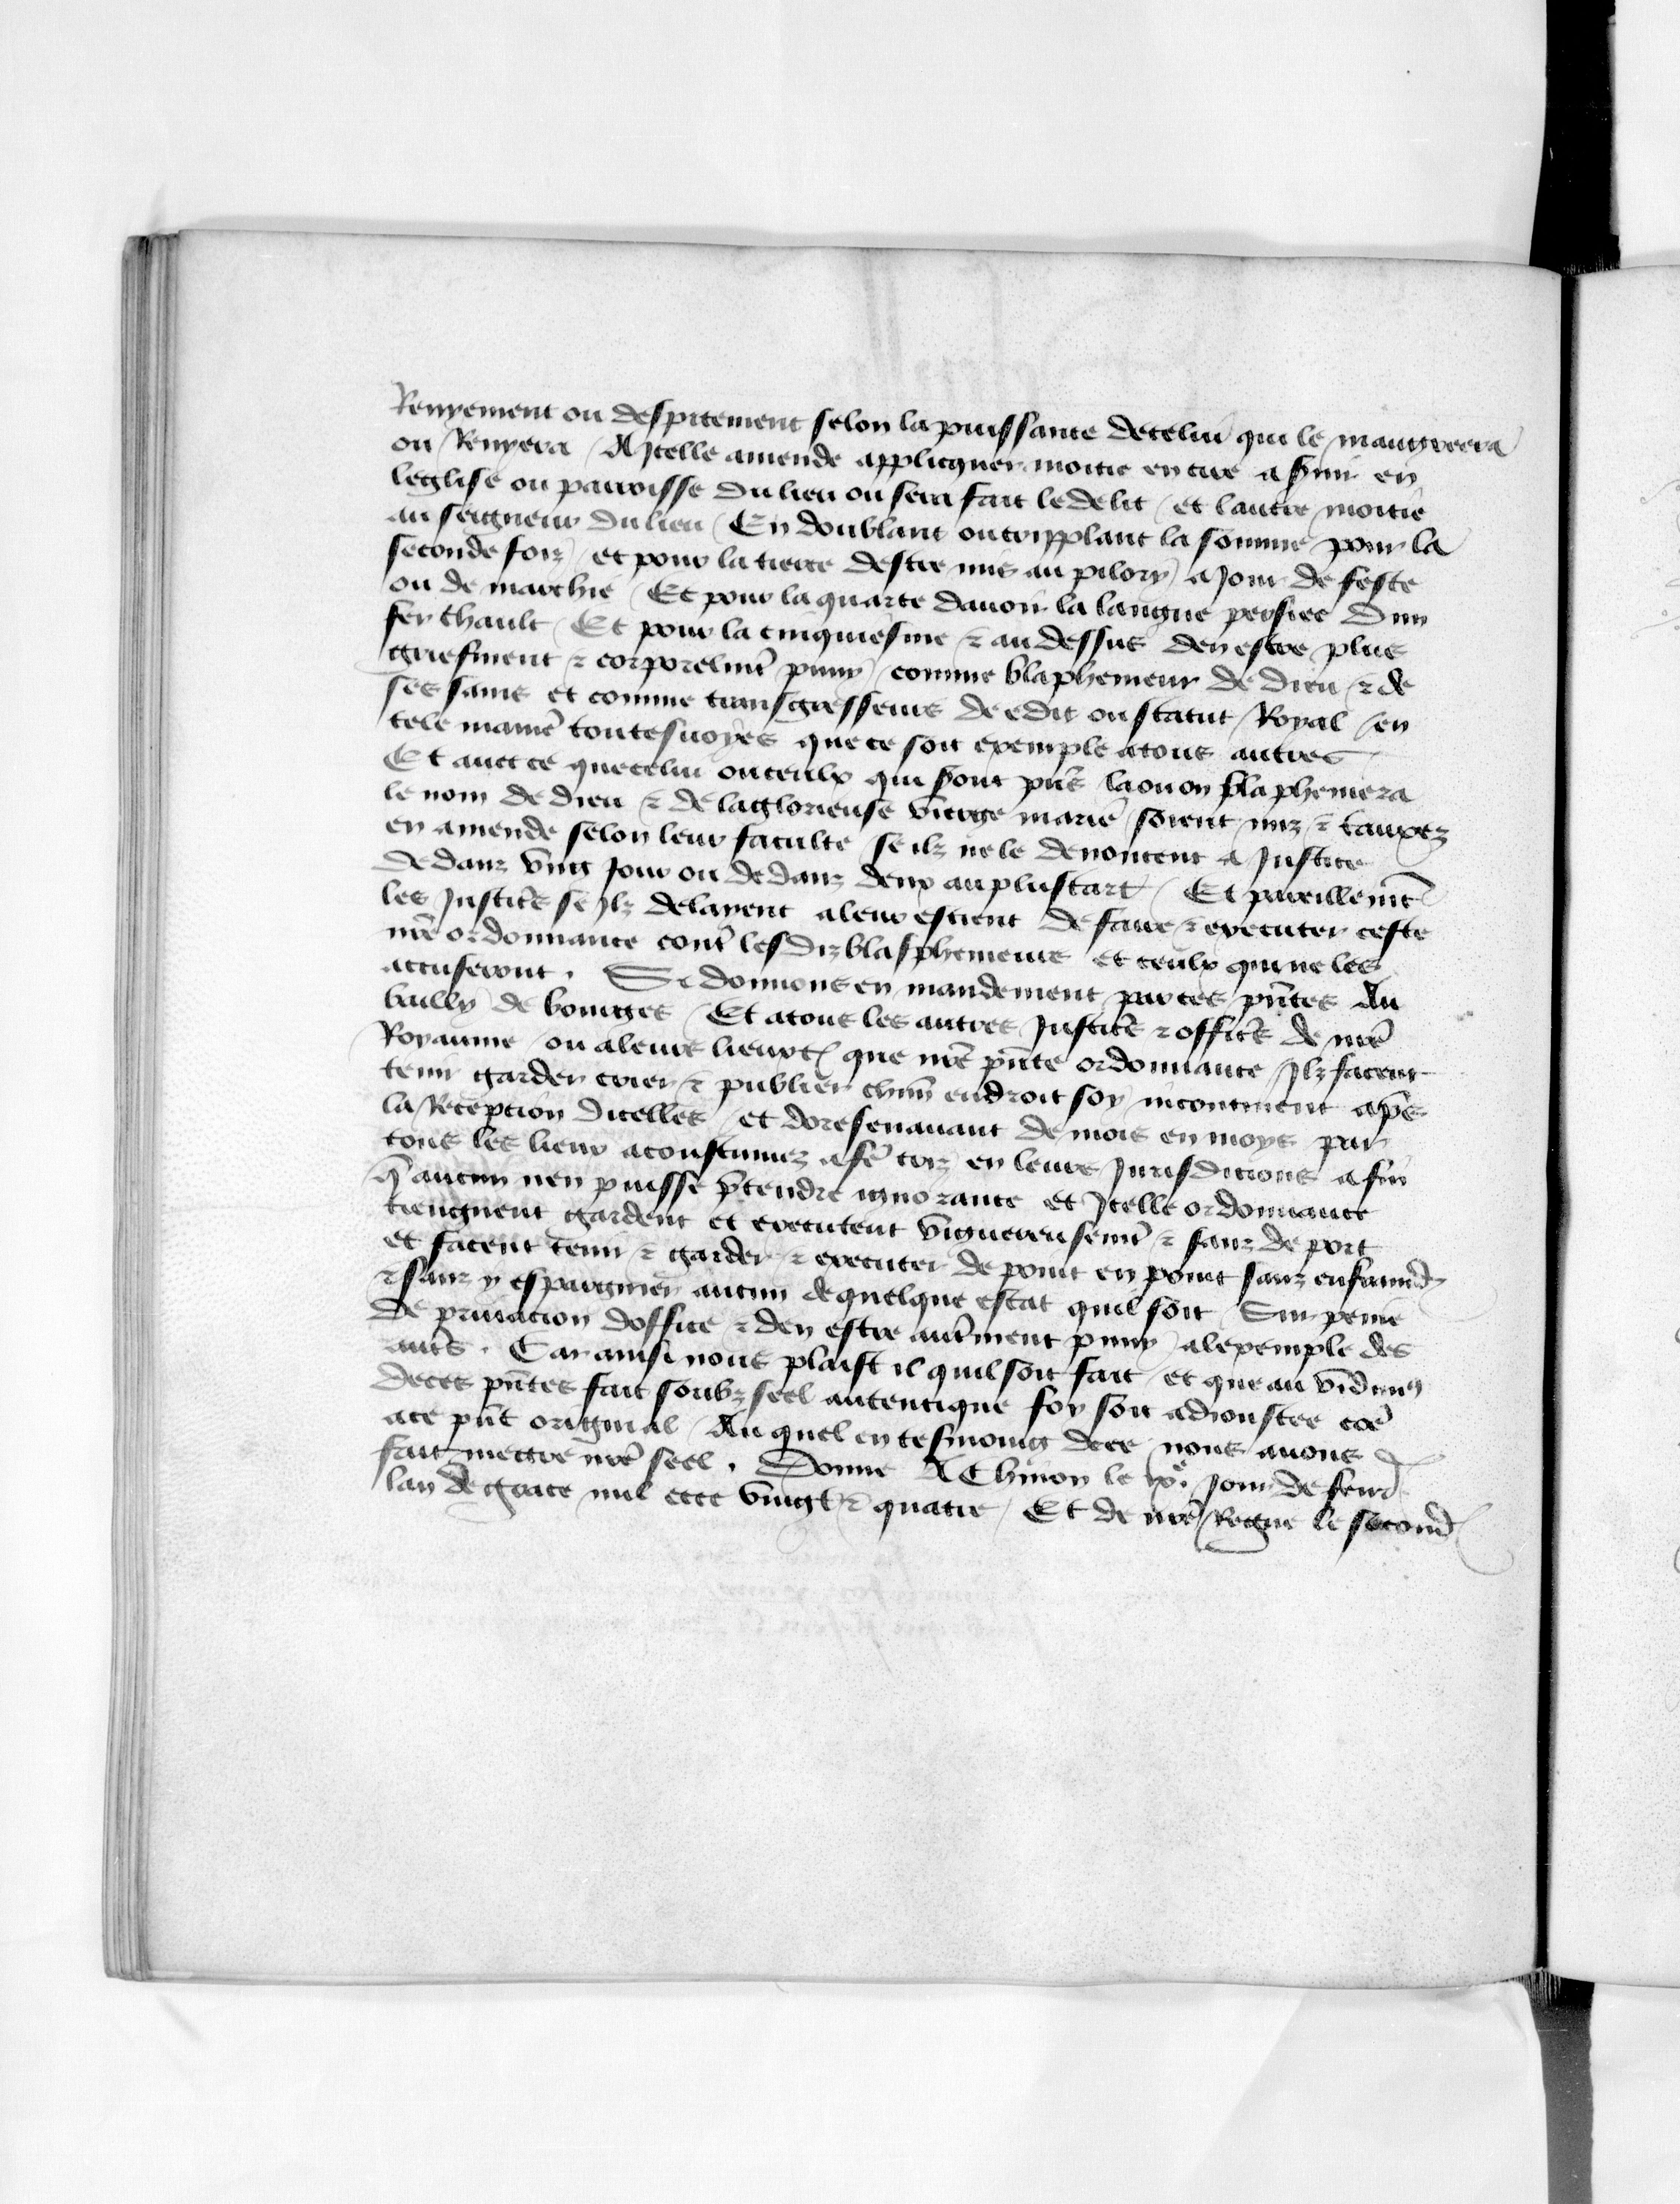 Renyement ou despitement selon la puissance de celui qui le maugreera
ou Renyera / A Icelle amende applicquer moitie en cire a offrir en
leglise ou parroisse du lieu ou sera fait le delit / et lautre moitie
au seigneur du lieu / En doublant ou tripplant la somme pour la
seconde foiz / et pour la tierce destre mis au pilory a Jour de feste
ou de marchie / Et pour la quarte davoir la langue persiee dun
fer chault / Et pour la cinquiesme & au dessus den estre plus
griefment & corporelmt puny / comme blaphemeur de dieu & de
ses sains et comme transgresseurs de edit ou statut Royal / en
tele manie toutesuoyes que ce soit exemple a tous autres
Et auec ce que celui ou ceulx qui sont pns la ou on blaphemera
le nom de dieu & de la glorieuse vierge marie soient mis & tauxez
en amende selon leur faculte se ilz ne le denoncent a Justice
dedanz vng Jour ou dedanz deux au plus tart / Et pareillemt
les Justices se Ilz delayent a leur escient de faire & executer ceste
nre ordonnance cont les diz blasphemeurs et ceulx qui ne les
accuseront . Si donnons en mandement par ces pntes Au
bailly de bourges / Et a tous les autres Justices & offices de nre
Royaume / ou a leurs lieuxt que nre pnte ordonnance Ilz facent
tenir garder crier & publier chun endroit soy incontinent apres
la Reception dicelles / et doresenauant de mois en moys par
tous les lieux acoustumez a fe criz en leurs Jurisdicions afin
q aucun nen puisse ptendre ignorance et Icelle ordonnance
tiengnent gardent et executent vigueureusemt & sanz deport
et facent tenir & garder & executer de point en point sanz enfraindre
& sanz y espargnier aucun de quelque estat quil soit / Sur peine
de priuacion doffice & den estre autment puny / a lexemple des
autes . Car ainsi nous plaist il quil soit fait / et que au vidimus
de ces pntes fait soubz seel autentique foy soit adioustee coe
a ce pnt original / Auquel en tesmoing de ce nous auons
fait mettre nre seel . Donne A Chinon le xe. Jour de feur
lan de grace mil cccc vingt & quatre / Et de nre Regne le second